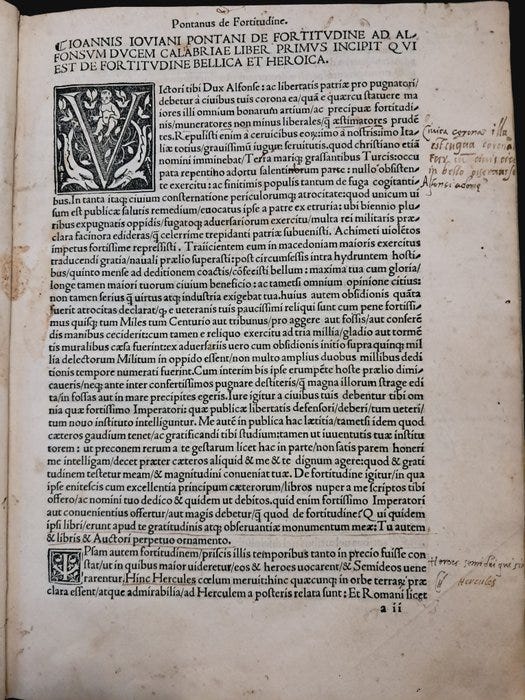 Pontanus de Fortitudine.
IOANNIS IOVIANI PONTANI DE FORTITVDINE AD AL/
FONSVM DVCEM CALABRIAE LIBER PRIMVS INCIPIT QVI
EST DE FORTITVDINE BELLICA ET HEROICA.
VIctori tibi Dux Alfonse: ac libertatis patriæ pro pugnatori/
debetur a ciuibus tuis corona ea/qua e quercu statuere ma
iores illi omnium bonarum artium/ac præcipuæ fortitudi
nis/muneratores non minus liberales/ꝗ æstimatores prudē
tes. Repulisti enim a ceruicibus eoꝝ: immo a nostris: imo Ita/
liæ totius/grauissimū iugum seruitutis. quod christiano etiā
nomini imminebat/Terra mariqꝫ grassantibus Turcis: occu
pata repentino adortu salentinorum parte: nullo obsisten/
te exercitu: ac finitimis populis tantum de fuga cogitanti/
bus. In tanta itaqꝫ ciuium consternatione periculorumqꝫ atrocitate: quod unicum ui
sum est publicæ salutis remedium/euocatus ipse a patre ex etruria: ubi biennio plu/
ribus expugnatis oppidis/fugatoqꝫ aduersariorum exercitu/multa rei militaris præ/
clara facinora edideras/ꝗ celerrime trepidanti patriæ subuenisti. Achimeti uiolētos
impetus fortissime repressisti. Traiicientem eum in macedoniam maiores exercitus
traducendi gratia/nauali prælio superasti: post circumsessis intra hydruntem hosti/
bus/quinto mense ad deditionem coactis/cōfecisti bellum: maxima tua cum gloria/
longe tamen maiori tuorum ciuium beneficio: ac tametsi omnium opinione citius:
non tamen serius ꝗ uirtus atqꝫ industria exigebat tua. huius autem obsidionis quāta
fuerit atrocitas declarat/qꝫ e ueteranis tuis paucissimi reliqui sunt cum pene fortissi/
mus quisqꝫ tum Miles tum Centurio aut tribunus/pro aggere aut fossis/aut conserē
dis manibus ceciderit: cum tamen e reliquo exercitu ad tria millia/gladio aut tormē
tis muralibus cæsa fuerint: ex aduersariis uero cum obsidionis initio supra quinqꝫ mil
lia delectorum Militum in oppido essent/non multo amplius duobus millibus dedi
tionis tempore numerati fuerint. Cum interim bis ipse erumpēte hoste prælio dimi/
caueris/neqꝫ ante inter confertissimos pugnare destiteris/ꝗ magna illorum strage edi
ta/in fossas aut in mare præcipites egeris. Iure igitur a ciuibus tuis debentur tibi om
nia quæ fortissimo Imperatori: quæ publicæ libertatis defensori/deberi/tum ueteri/
tum nouo instituto intelliguntur. Me autē in publica hac lætitia/tametsi idem quod
cæteros gaudium tenet/ac gratificandi tibi studium: tamen ut iuuentutis tuæ institu
torem: ut preconem rerum a te gestarum licet hac in parte/non satis parem honeri
me intelligam/decet præter cæteros aliquid & me & te dignum agere: quod & grati
tudinem testetur meam/& magnitudini conueniat tuæ. De fortitudine igitur/in qua
ipse enitescis cum excellentia principum cæterorum/libros nuper a me scriptos tibi
offero/ac nomini tuo dedico & quidem ut debitos. quid enim fortissimo Imperatori
aut conuenientius offertur/aut magis debetur/ꝗ quod de fortitudine? Qui quidem
ipsi libri/erunt apud te gratitudinis atqꝫ obseruantiæ monumentum meæ: Tu autem
& libris & Auctori perpetuo ornamento.
IPsam autem fortitudinem/priscis illis temporibus tanto in precio fuisse con
stat/ut in quibus maior uideretur/eos & heroes uocarent/& Semideos uene
rarentur. Hinc Hercules cœlum meruit: hinc quæcunqꝫ in orbe terraꝝ præ
clara essent/atque admirabilia/ad Herculem a posteris relata sunt: Et Romani licet
a ii
Ciuica corona illa
est
in bello
Alfonsi
Heroes semidei
Hercules